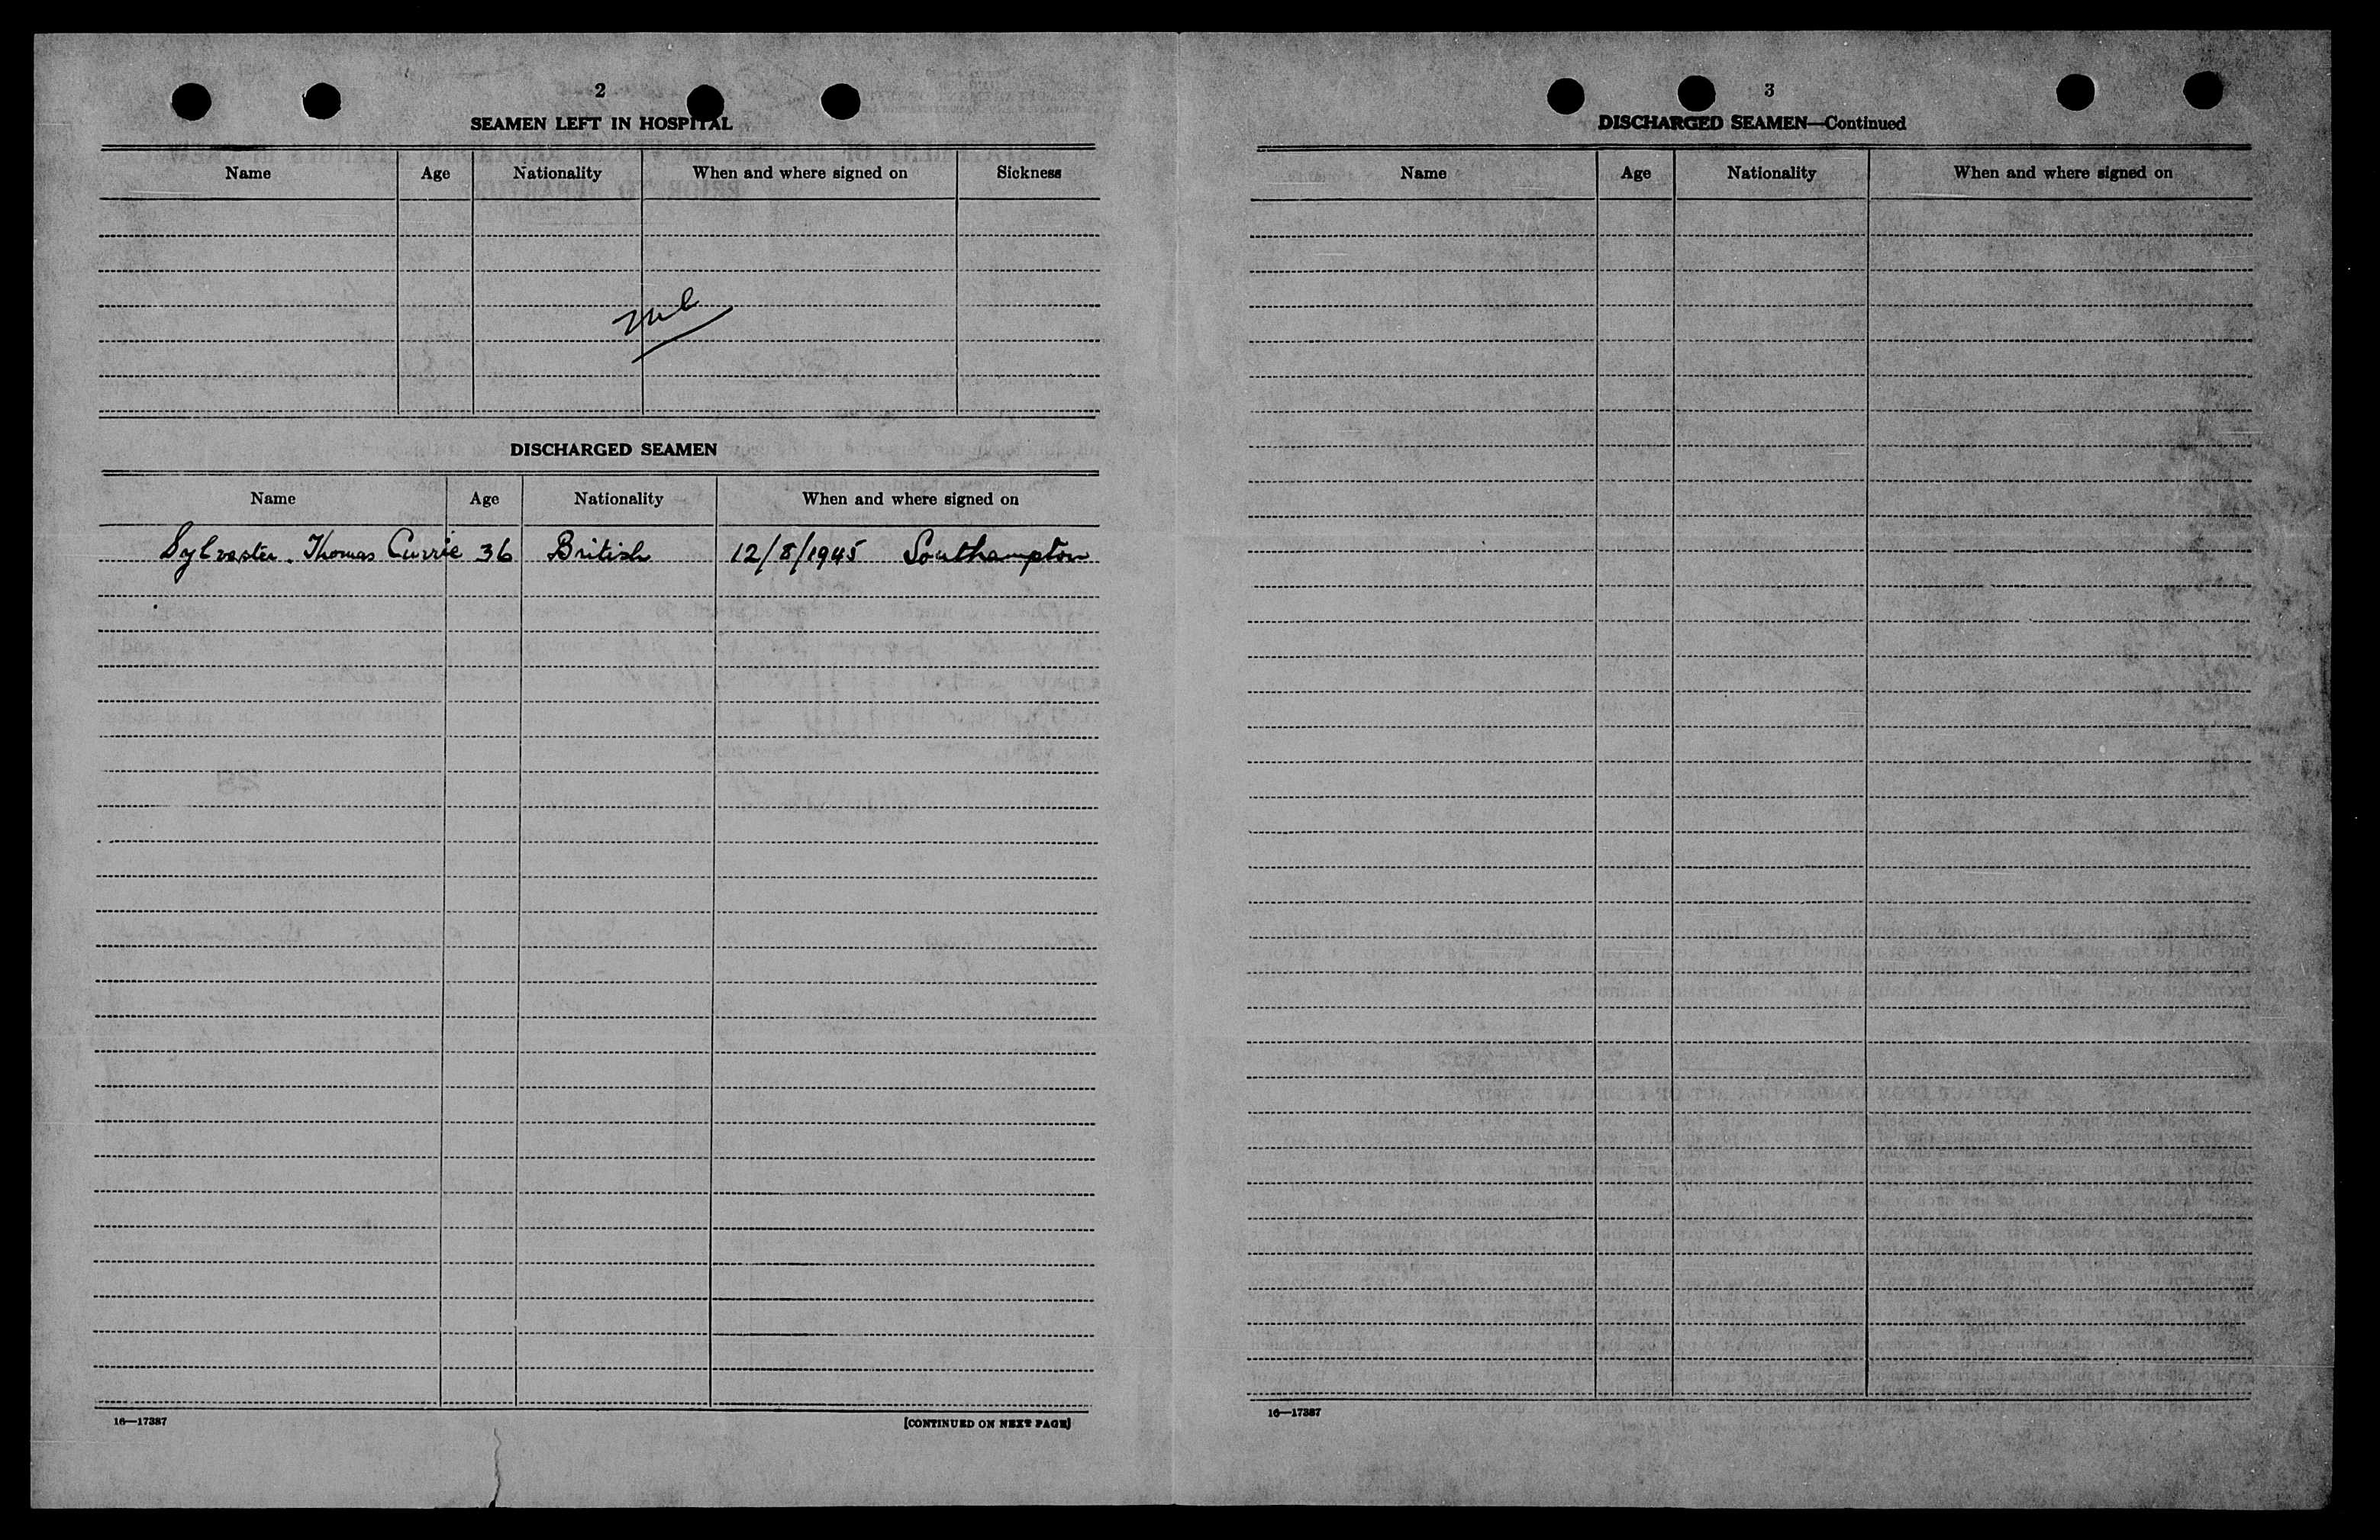 2
SEAMEN LEFT IN HOSPITAL
Name Age Nationality When and where signed on Sickness
Nil
DISCHARGED SEAMEN
Name Age Nationality When and where signed on
Sylvester. Thomas Currie 36 British 12/8/1945 Southampton
16—17387 [CONTINUED ON NEXT PAGE]
3
DISCHARGED SEAMEN—Continued
Name Age Nationality When and where signed on
16—17387